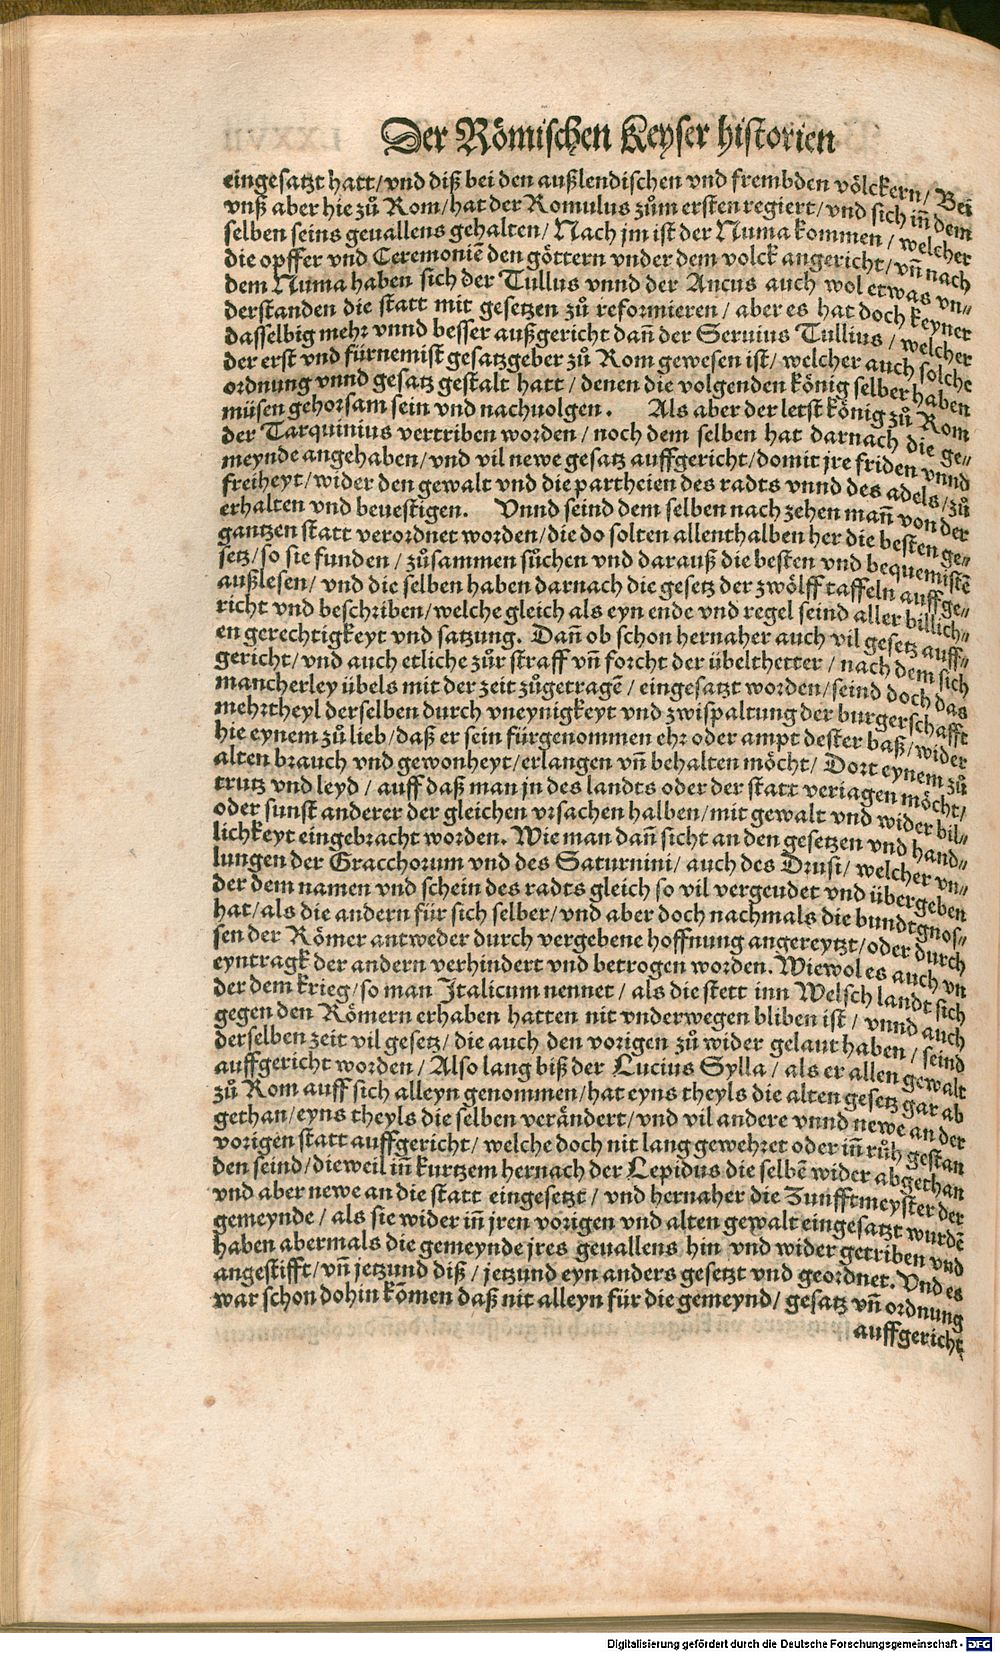 Der Römischen Keyser historien
eingesatzt hatt/vnd diß bei den außlendischen vnd frembden völckern/Bei
vnß aber hie zů Rom/hat der Romulus zům ersten regiert/vnd sich iñ dem
selben seins geuallens gehalten/Nach jm ist der Numa kommen/welcher
die opffer vnd Ceremoniē den göttern vnder dem volck angericht/vñ nach
dem Numa haben sich der Tullus vnnd der Ancus auch wol etwas vn⸗
derstanden die statt mit gesetzen zů reformieren/aber es hat doch keyner
dasselbig mehr vnnd besser außgericht dañ der Seruius Tullius/welcher
der erst vnd fürnemist gesatzgeber zů Rom gewesen ist/welcher auch solche
ordnung vnnd gesatz gestalt hatt/denen die volgenden könig selber haben
müsen gehorsam sein vnd nachuolgen. Als aber der letst könig zů Rom
der Tarquinius vertriben worden/noch dem selben hat darnach die ge⸗
meynde angehaben/vnd vil newe gesatz auffgericht/domit jre friden vnnd
freiheyt/wider den gewalt vnd die partheien des radts vnnd des adels/zů
erhalten vnd beuestigen. Vnnd seind dem selben nach zehen mañ von der
gantzen statt verordnet worden/die do solten allenthalben her die besten ge⸗
setz/so sie funden/zůsammen sůchen vnd darauß die besten vnd bequemistē
außlesen/vnd die selben haben darnach die gesetz der zwölff taffeln auffge⸗
richt vnd beschriben/welche gleich als eyn ende vnd regel seind aller billich⸗
en gerechtigkeyt vnd satzung. Dañ ob schon hernaher auch vil gesetz auff⸗
gericht/vnd auch etliche zůr straff vñ forcht der übelthetter/nach dem sich
mancherley übels mit der zeit zůgetragē/eingesatzt worden/seind doch das
mehrtheyl derselben durch vneynigkeyt vnd zwispaltung der burgerschafft
hie eynem zů lieb/daß er sein fürgenommen ehr oder ampt dester baß/wider
alten brauch vnd gewonheyt/erlangen vñ behalten möcht/Dort eynem zů
trutz vnd leyd/auff daß man jn des landts oder der statt veriagen möcht/
oder sunst anderer der gleichen vrsachen halben/mit gewalt vnd wider bil⸗
lichkeyt eingebracht worden. Wie man dañ sicht an den gesetzen vnd hand⸗
lungen der Gracchorum vnd des Saturnini/auch des Drusi/welcher vn⸗
der dem namen vnd schein des radts gleich so vil vergeudet vnd übergeben
hat/als die andern für sich selber/vnd aber doch nachmals die bundtgnos⸗
sen der Römer antweder durch vergebene hoffnung angereytzt/oder durch
eyntragk der andern verhindert vnd betrogen worden. Wiewol es auch vn
der dem krieg/so man Italicum nennet/als die stett inn Welsch landt sich
gegen den Römern erhaben hatten nit vnderwegen bliben ist/vnnd auch
derselben zeit vil gesetz/die auch den vorigen zů wider gelaut haben/seind
auffgericht worden/Also lang biß der Lucius Sylla/als er allen gewalt
zů Rom auff sich alleyn genommen/hat eyns theyls die alten gesetz gar ab
gethan/eyns theyls die selben verändert/vnd vil andere vnnd newe an der
vorigen statt auffgericht/welche doch nit lang gewehret oder iñ růh gestan
den seind/dieweil iñ kurtzem hernach der Lepidus die selbē wider abgethan
vnd aber newe an die statt eingesetzt/vnd hernaher die Zunfftmeyster der
gemeynde/als sie wider iñ jren vorigen vnd alten gewalt eingesatzt wurdē
haben abermals die gemeynde jres geuallens hin vnd wider getriben vnd
angestifft/vñ jetzund diß/jetzund eyn anders gesetzt vnd geordnet. Vnd es
war schon dohin kōmen daß nit alleyn für die gemeynd/gesatz vñ ordnung
auffgericht
Digitalisierung gefördert durch die Deutsche Forschungsgemeinschaft - DFG